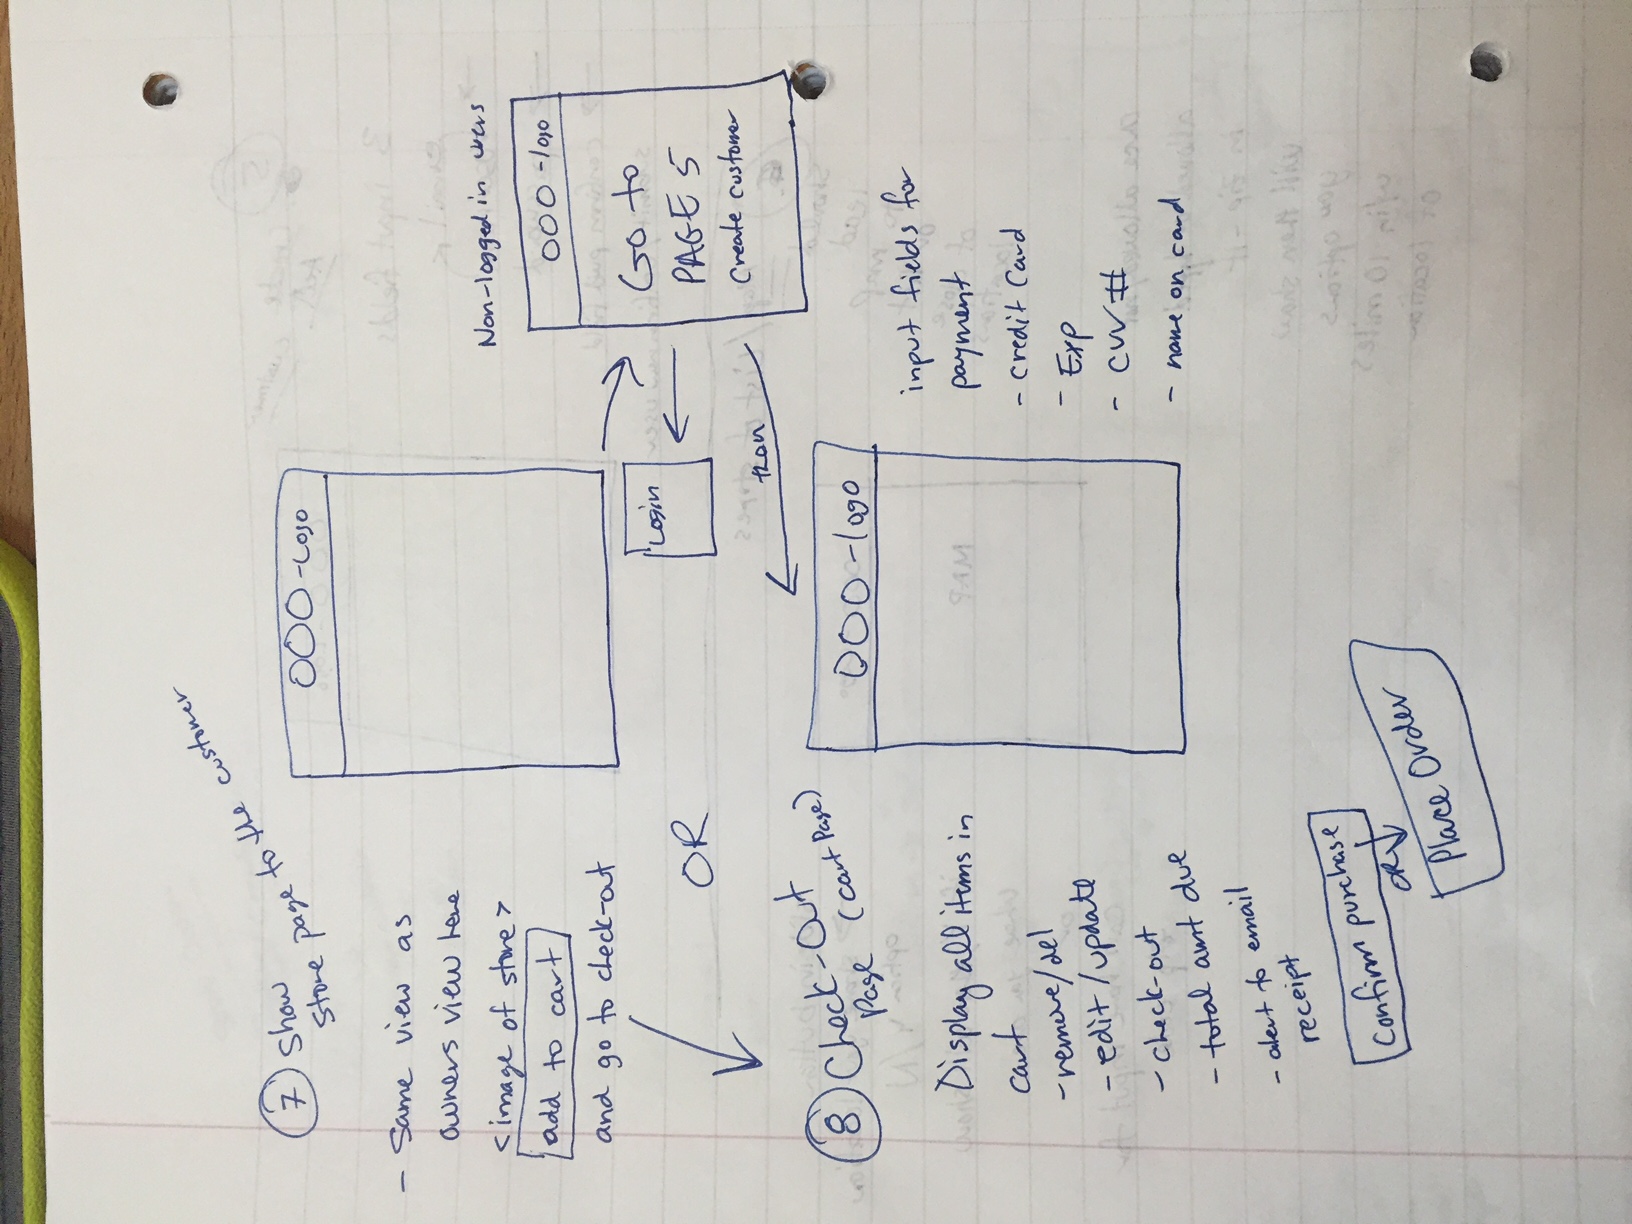 7 Show
store page to the customer
OOO -Logo
- Same view as
owners view here
<image of store>
add to cart
and go to check-out
Non-logged in users
OOO -logo
Go to
PAGE 5
Create customer
Login
OR
then
8 Check-Out
Page (cart Page)
OOO -logo
Display all items in
cart
- remove/del
- edit/update
- check-out
- total amt due
- alert to email
receipt
Confirm purchase
OR
Place Order
input fields for
payment
- credit card
- Exp
- CVV #
- name on card